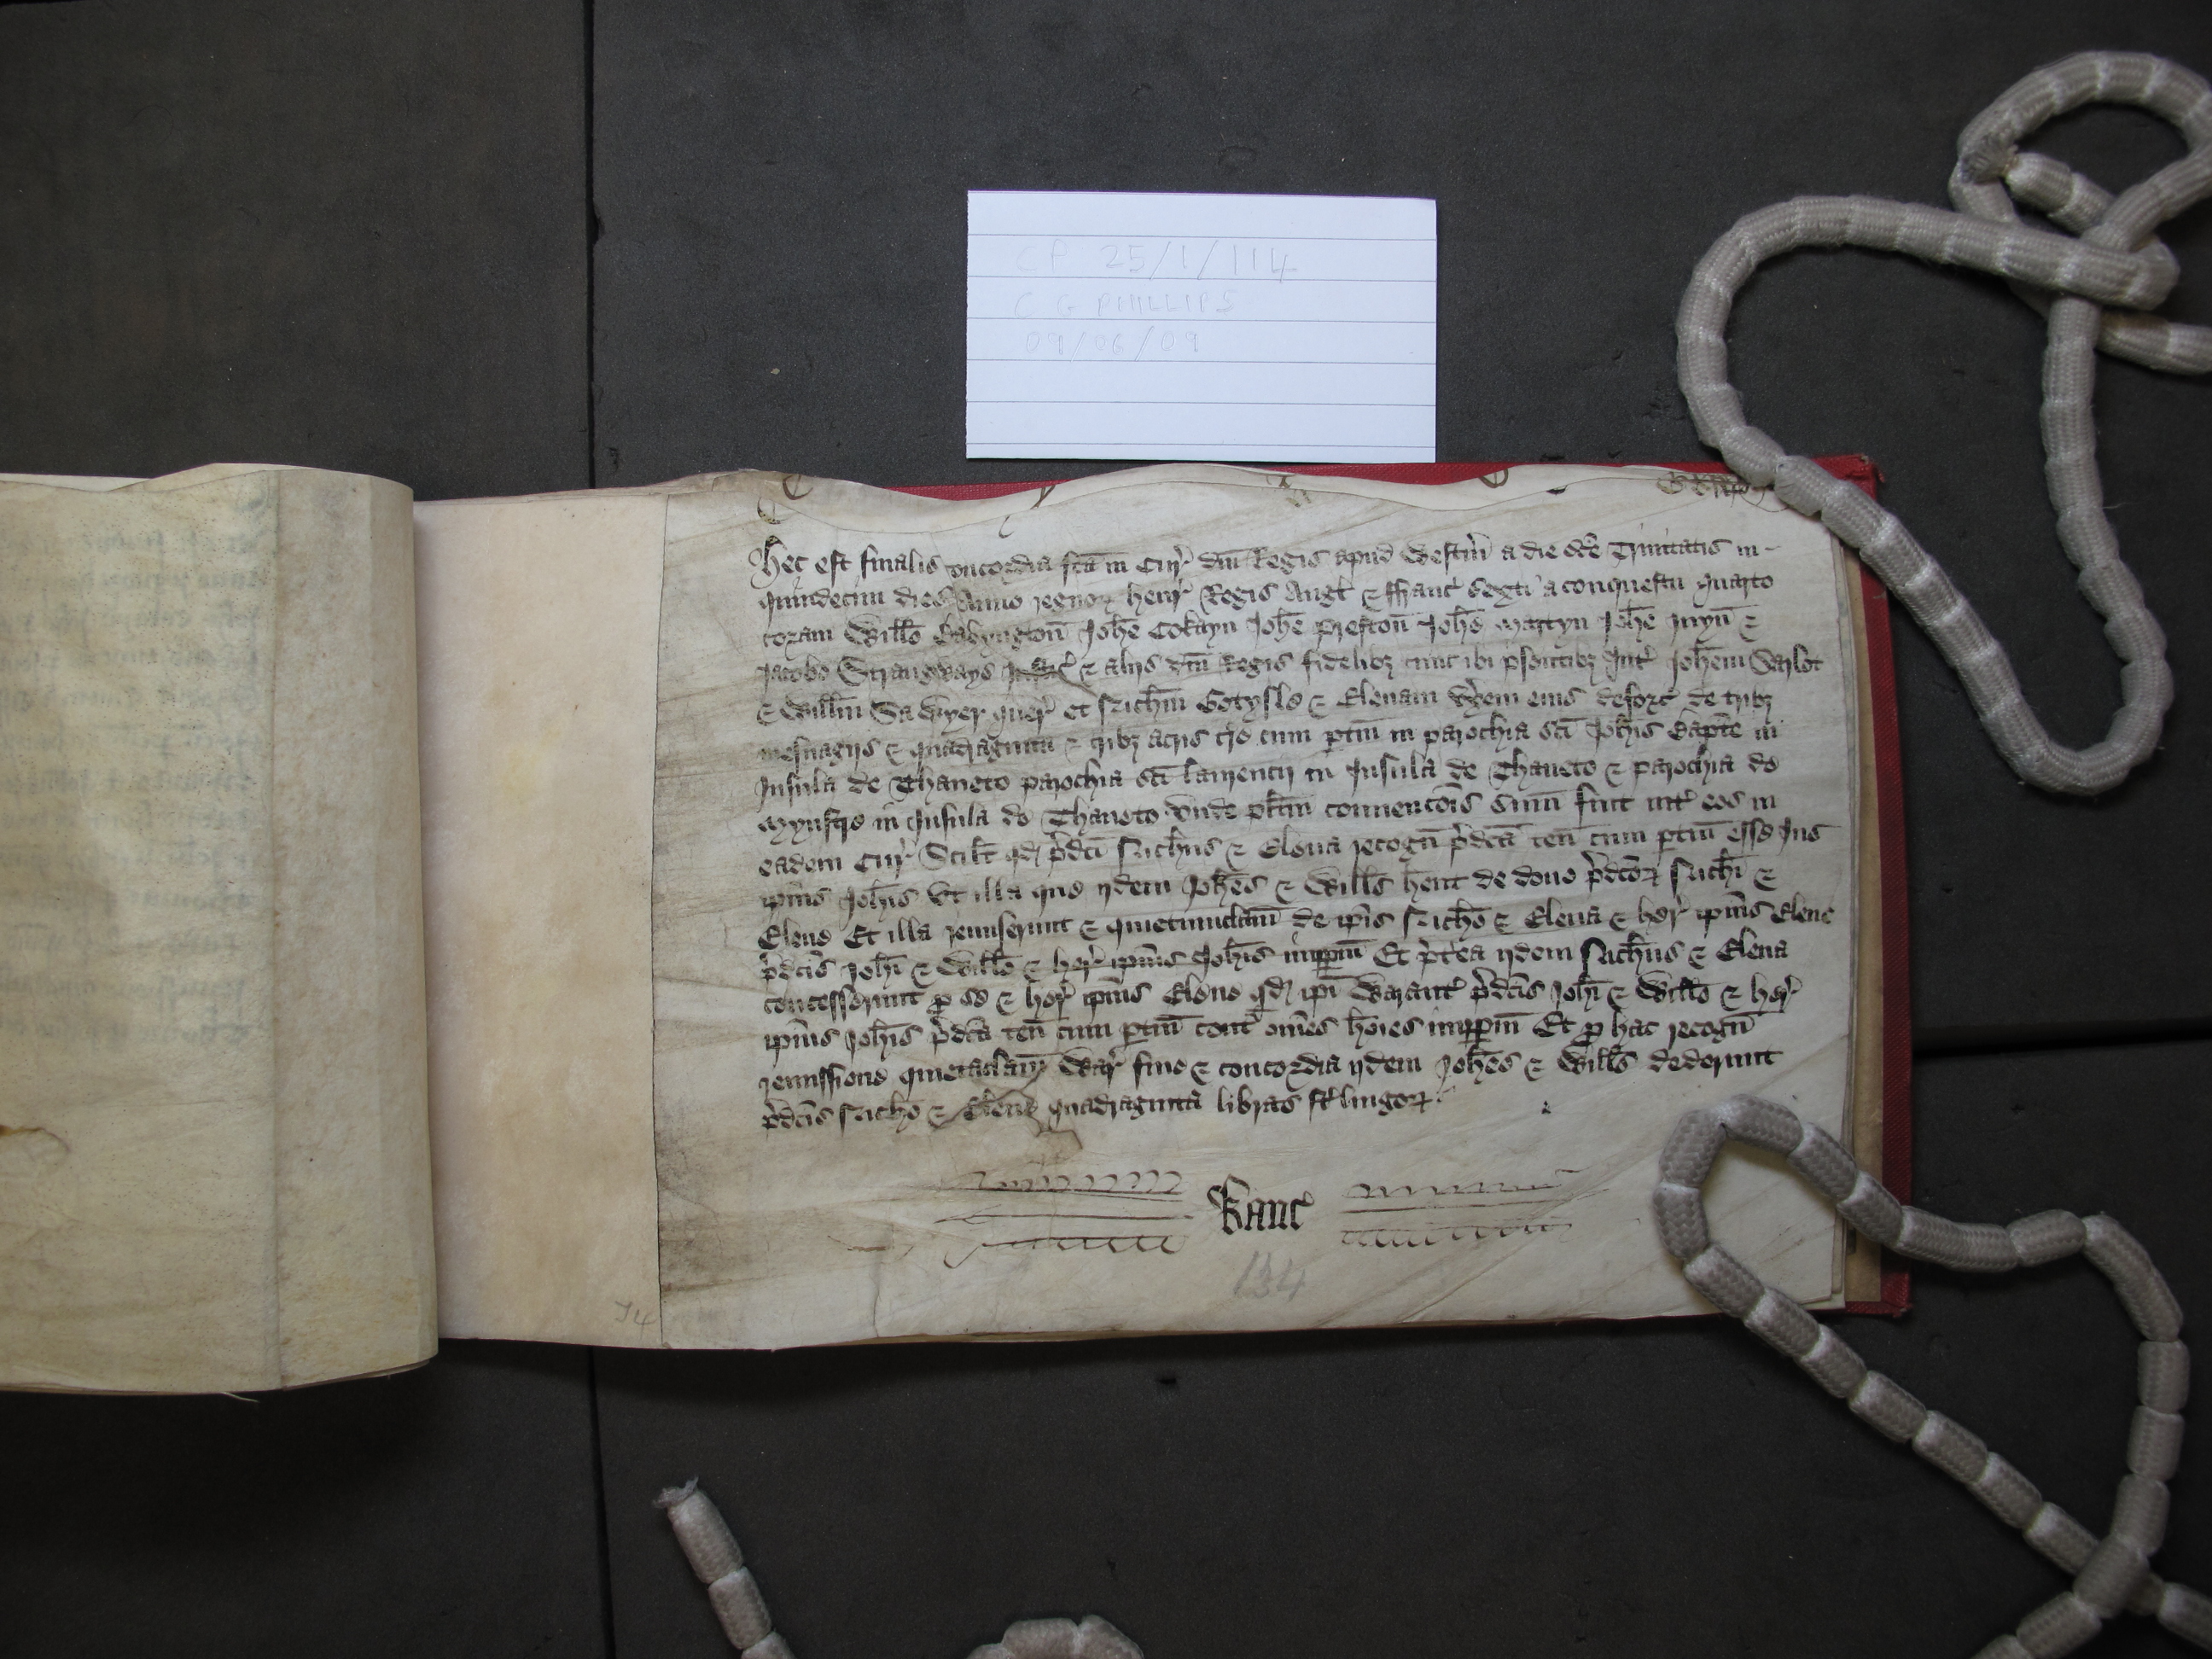 CP 25/1/114
C G PHILLIPS
09/06/09
Hec est finalis concordia fc̄a in Cur̛ dn̄i Regis apud Westm̄ a die sc̄e Trinitatis in
quindecim dies Anno regnoꝝ Henr̛ Regis Angł & Ffranc̛ sexti a conquestu quarto
coram Wilłō Babyngton̄ Joh̄e Cokayn Joh̄e Preston̄ Joh̄e Martyn Joh̄e Juyn̄ &
Jacobo Strangways Justic̛ & alijs dn̄i Regis fidelibꝫ tunc ibi p̄sentibꝫ Int̛ Joh̄em
& Willm̄ Sawyer quer̛ et Ric̄hm Gotysle & Elenam ux̛em eius deforc̛ de tribꝫ
mesuagijs & quadraginta & tribꝫ acris tr̄e cum ptin̄ in parochia sc̄i Joh̄is Bapt̄e in
Insula de Thaneto parochia sc̄i Laurencij in Insula de Thaneto & parochia de
Mynstre in Insula de Thaneto Vnde plītm convencōis sum̄ fuit int̛ eos in
eadem Cur̛ Scił̄t qd̛ p̄dc̄i Ric̄hus & Elena recogn̄ p̄dc̄a ten̄ cum ptin̄ esse Jus
ip̄ius Joh̄is Vt illa que ijdem Joh̄es & Wilłs h̄ent de dono p̄dc̄oꝝ Ric̄hi &
Elene Et illa remiserunt & quietumclam̄ de ip̄is Ric̄ho & Elena & her̛ ip̄ius Elene
p̄dc̄is Joh̄i & Wilłō & her̛ ip̄ius Joh̄is imppm̄ Et p̄t̛ea ijdem Ric̄hus & Elena
concesserunt ꝓ se & her̛ ip̄ius Elene qd̛ ip̄i Warant̛ p̄dc̄is Joh̄i & Wilłō & her̛
ip̄ius Joh̄is p̄dc̄a ten̄ cum ptin̄ cont̛ om̄es hōies imppm̄ Et ꝓ hac recogn̄
remissione quietaclam̄ War̛ fine & concordia ijdem Joh̄es & Wilłs dederunt
p̄dc̄is Ric̄ho & Elene quadraginta libras st̛lingoꝝ
Kanc̛
134
74